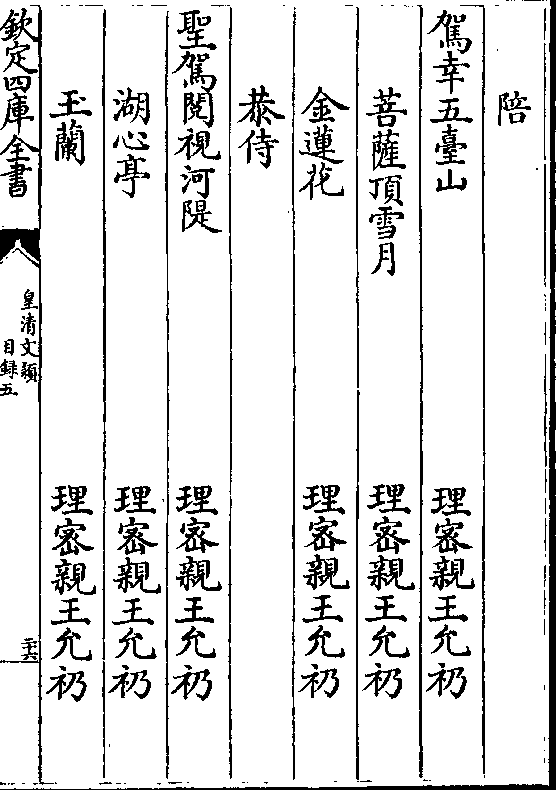 陪
駕幸五臺山　理密親王允礽
菩薩頂雪月　理密親王允礽
金蓮花　理密親王允礽
恭侍
聖駕閱視河隄　理密親王允礽
湖心亭　理密親王允礽
玉蘭　理密親王允礽
欽定四庫全書
皇清文穎
目錄五
二十六